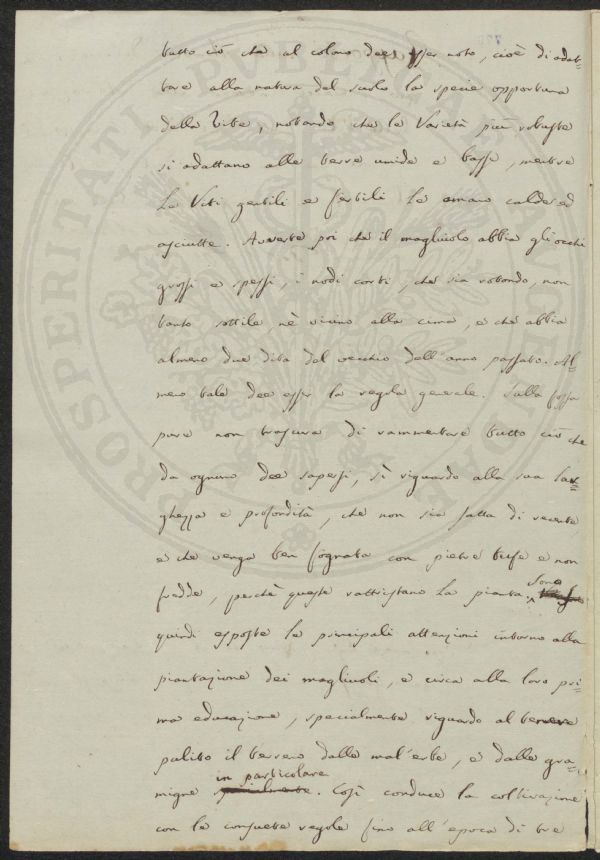 tutto ciò che al colono dee esser noto, cioè di adat-
tare alla natura del suolo la specie opportuna
della Vite, notando che le Varietà più robuste
si adattano alle terre umide e basse, mentre
Le Viti gentili e fertili le amano calde ed
asciutte. Avverte poi che il magliuolo abbia gli occhi
grossi e spessi, i nodi corti, che sia rotondo, non
tanto sottile, nè vicino alla cima, e che abbia
almeno due dita del vecchio dell'anno passato. Al-
meno tale dee esser la regola generale. Sulla fossa
pure non trascura di rammentare tutto ciò che
da ognuno dee sapersi, sì riguardo alla sua lar-
ghezza e profondità, che non sia fatta di recente
e che venga ben fognata con pietre tufe e non
fredde, perchè queste rattristano la pianta. Sono
quindi esposte le principali attenzioni intorno alla
piantazione dei magliuoli, e circa alla loro pri-
ma educazione, specialmente riguardo al tenere
pulito il terreno dalle mal'erbe, e dalle gra-
migne in particolare. Così conduce la coltivazione
con le consuete regole fino all'epoca di tre
PROSPERITATI PUBLICAE AUGENDAE